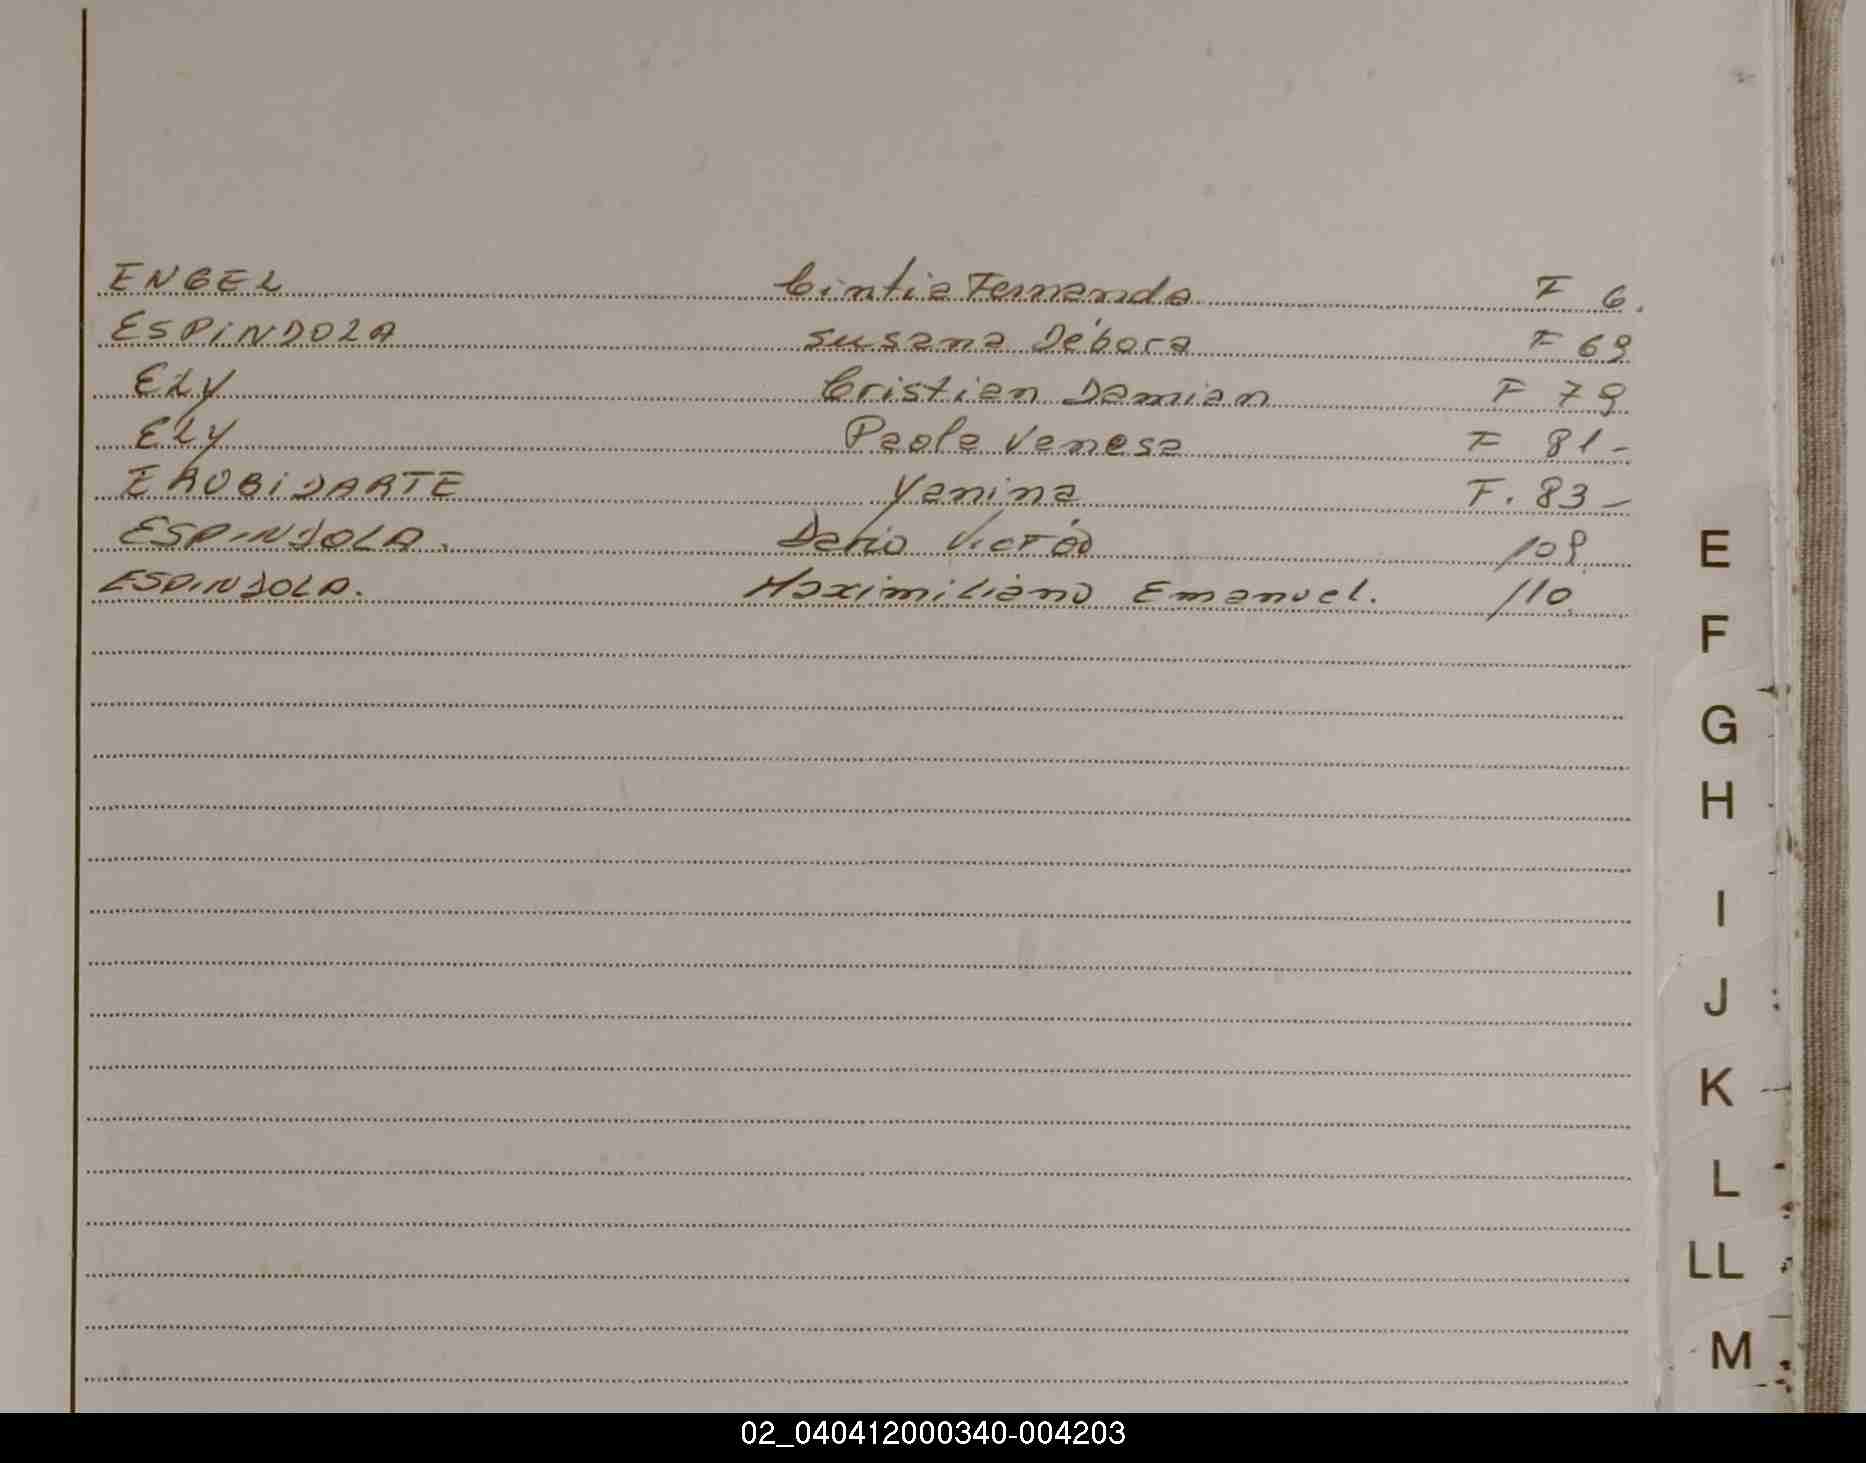 ENGEL Cintia Fernanda F 6.
ESPINDOLA Susana Débora F 69
ELY Cristian Damian F 79
ELY Paola Vanesa F 81-
EROBIDARTE Yanina F. 83-
ESPINDOLA. Dario Victor 109
ESPINDOLA. Maximiliano Emanuel. 110
E
F
G
H
I
J
K
L
LL
M
02_040412000340-004203